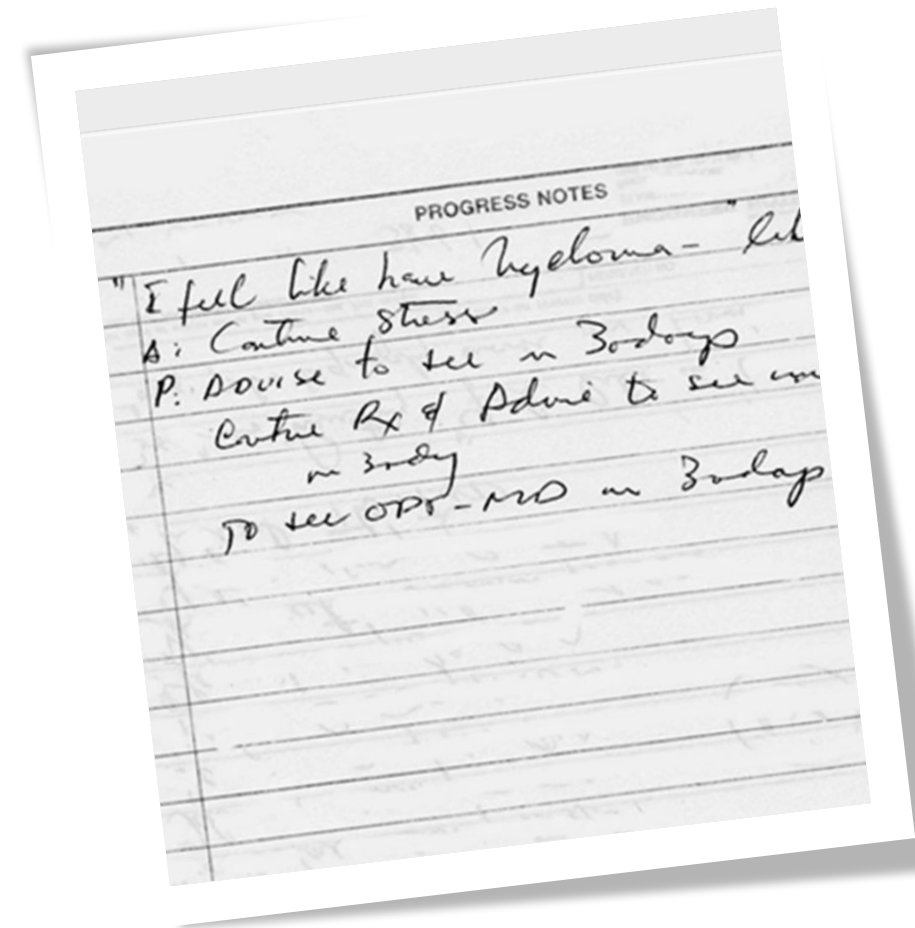 PROGRESS NOTES
"I feel like have Myeloma - "
A: Continue Stress
P: ADVISE to see in 30 days
Continue Rx & Advise to see
in 30 day
TO see OPT-MD in 30 days